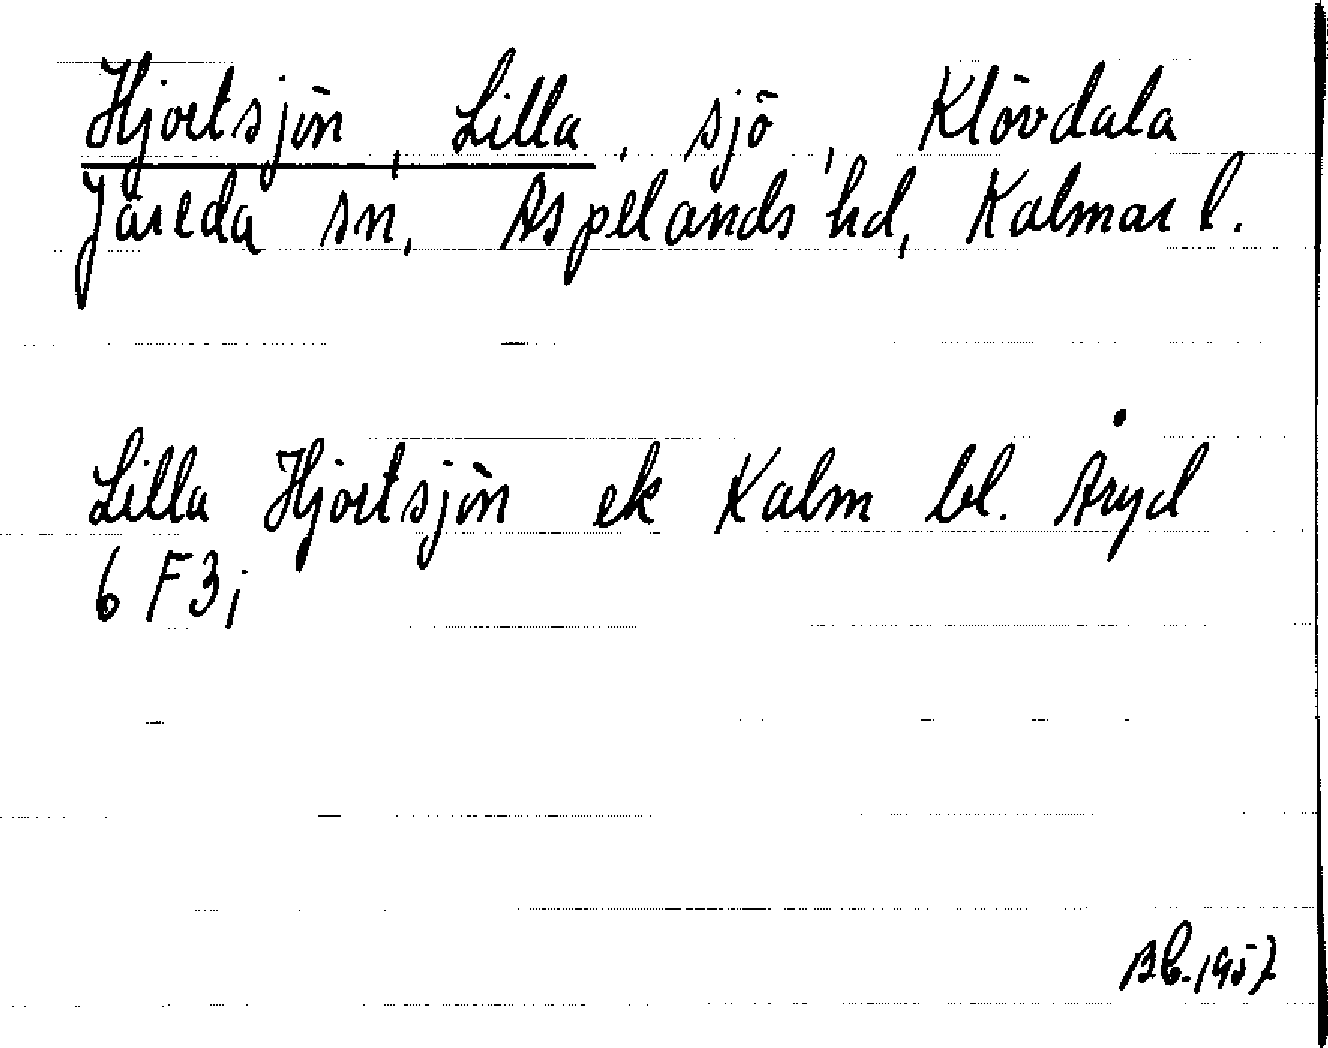 Hjortsjön, Lilla, sjö, Klövdala
Järeda sn, Aspelands hd, Kalmar l.
Lilla Hjortsjön ek Kalm bl. Åryd
6 F3i
Bb. 1957